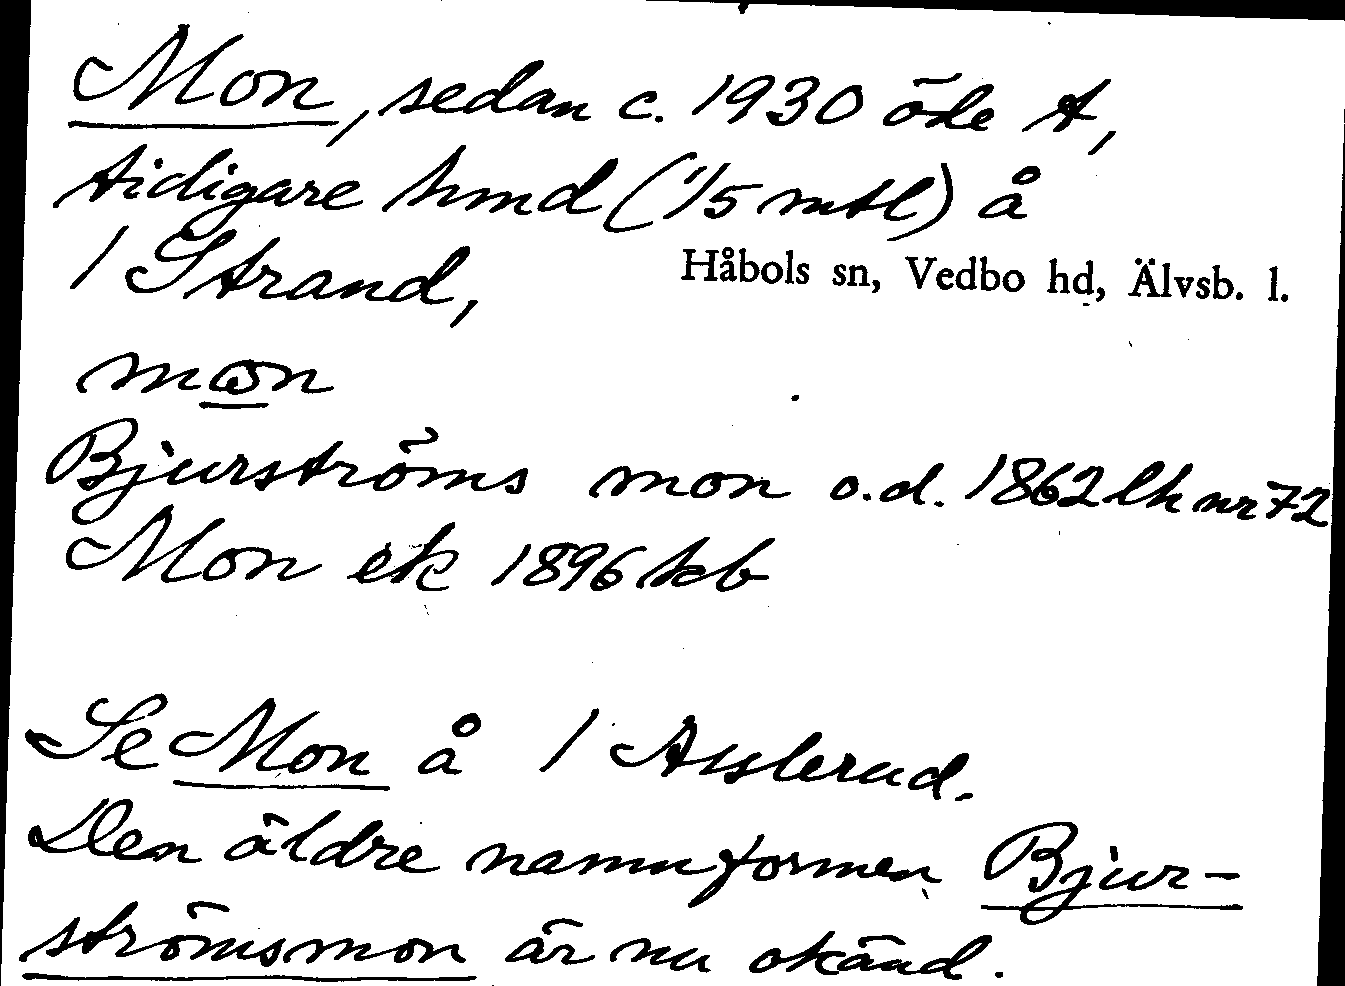 Mon, sedan c. 1930 öde t,
tidigare hmd (1/5 mtl) å
1 Strand,
Håbols sn, Vedbo hd, Älvsb. l.
Bjurströms mon o.d. 1862 lh nr 72
Mon ek 1896 kb
Se Mon å 1 Asslerud.
Den äldre namnformen Bjur-
strömsmon är nu okänd.